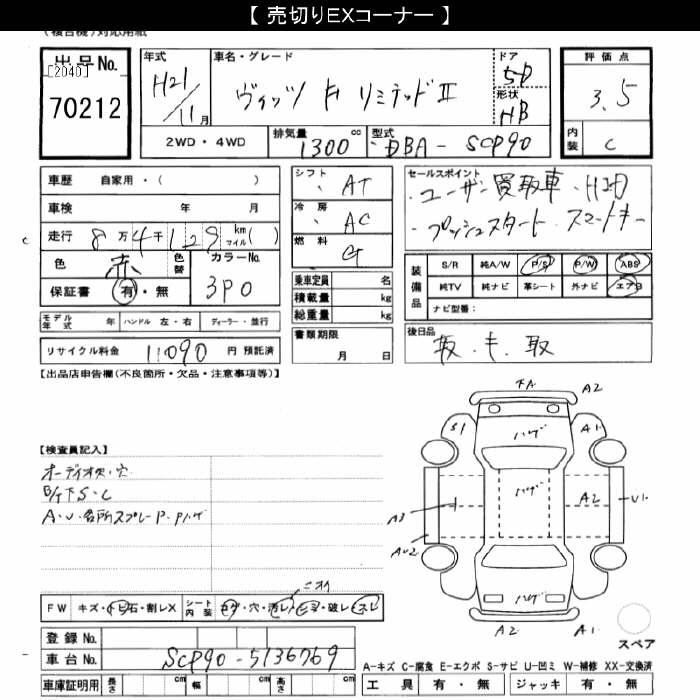 【 売切りEXコーナー 】
(複合機)対応用紙
出品No.
[2040]
70212
年式
H21/11月
車名・グレード
ヴィッツ F リミテッドⅡ
ドア
5D
形状
HB
評価点
3.5
内装
C
2WD・4WD
排気量
1300cc
型式
DBA-SCP90
車歴 自家用・( )
車検 年 月
走行 8万4千129 km マイル( )
色 赤 色替
カラーNo.
3P0
保証書 有・無
モデル年式 年 ハンドル 左・右 ディーラー・並行
リサイクル料金 11090 円 預託済
シフト AT
冷房 AC
燃料 G
乗車定員 名
積載量 kg
総重量 kg
書類期限
月 日
セールスポイント
・ユーザー買取車・HID
・プッシュスタート スマートキー
装備品
S/R 純A/W P/S P/W ABS
純TV 純ナビ 革シート 外ナビ エアB
ナビ型番:
後日品
取・キ・取
【出品店申告欄(不良箇所・欠品・注意事項等)】
【検査員記入】
オーディオ欠・穴
B/T下S・C
A・U・各所スプレーP・Pハゲ
ニオイ
FW キズ・トビ石・割レX
シート内装 コゲ・穴・汚レ・ヒビ・破レ・スレ
登録No.
車台No. SCP90-5136769
車庫証明用 長さ cm 幅 cm 高さ cm
下A A2
S1 ハゲ A1
ハゲ A2 U1
A3
AU2
ハゲ
A2 A1
スペア
A-キズ C-腐食 E-エクボ S-サビ U-凹ミ W-補修 XX-交換済
工具 有・無 ジャッキ 有・無